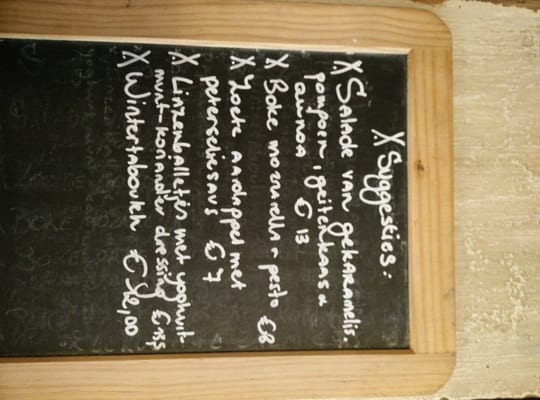 X Suggesties:
X Salade van gekaramelis.
pompoen, geitenkaas &
quinoa € 13
X Boke mozzarella & pesto €8
X Zoete aardappel met
peterseliesaus € 7
X Linzenballetjes met yoghurt-
munt-koriander dressing € 13,5
X Wintertabouleh €